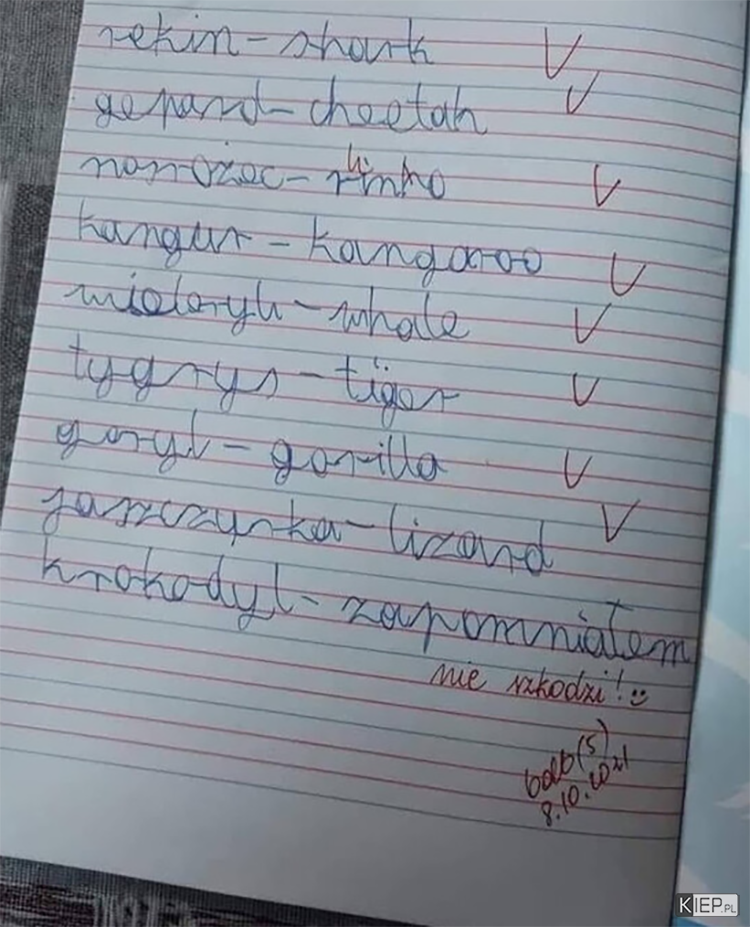 rekin – shark V
gepard – cheetah V
nosrożec – rinho V
kangur – kangaroo V
wieloryb – whale V
tygrys – tiger V
goryl – gorilla V
jaszczyrka – lizard V
krokodyl – zapomniałem
nie szkodzi! :)
bdb (5)
8.10.2021
KIEP.PL